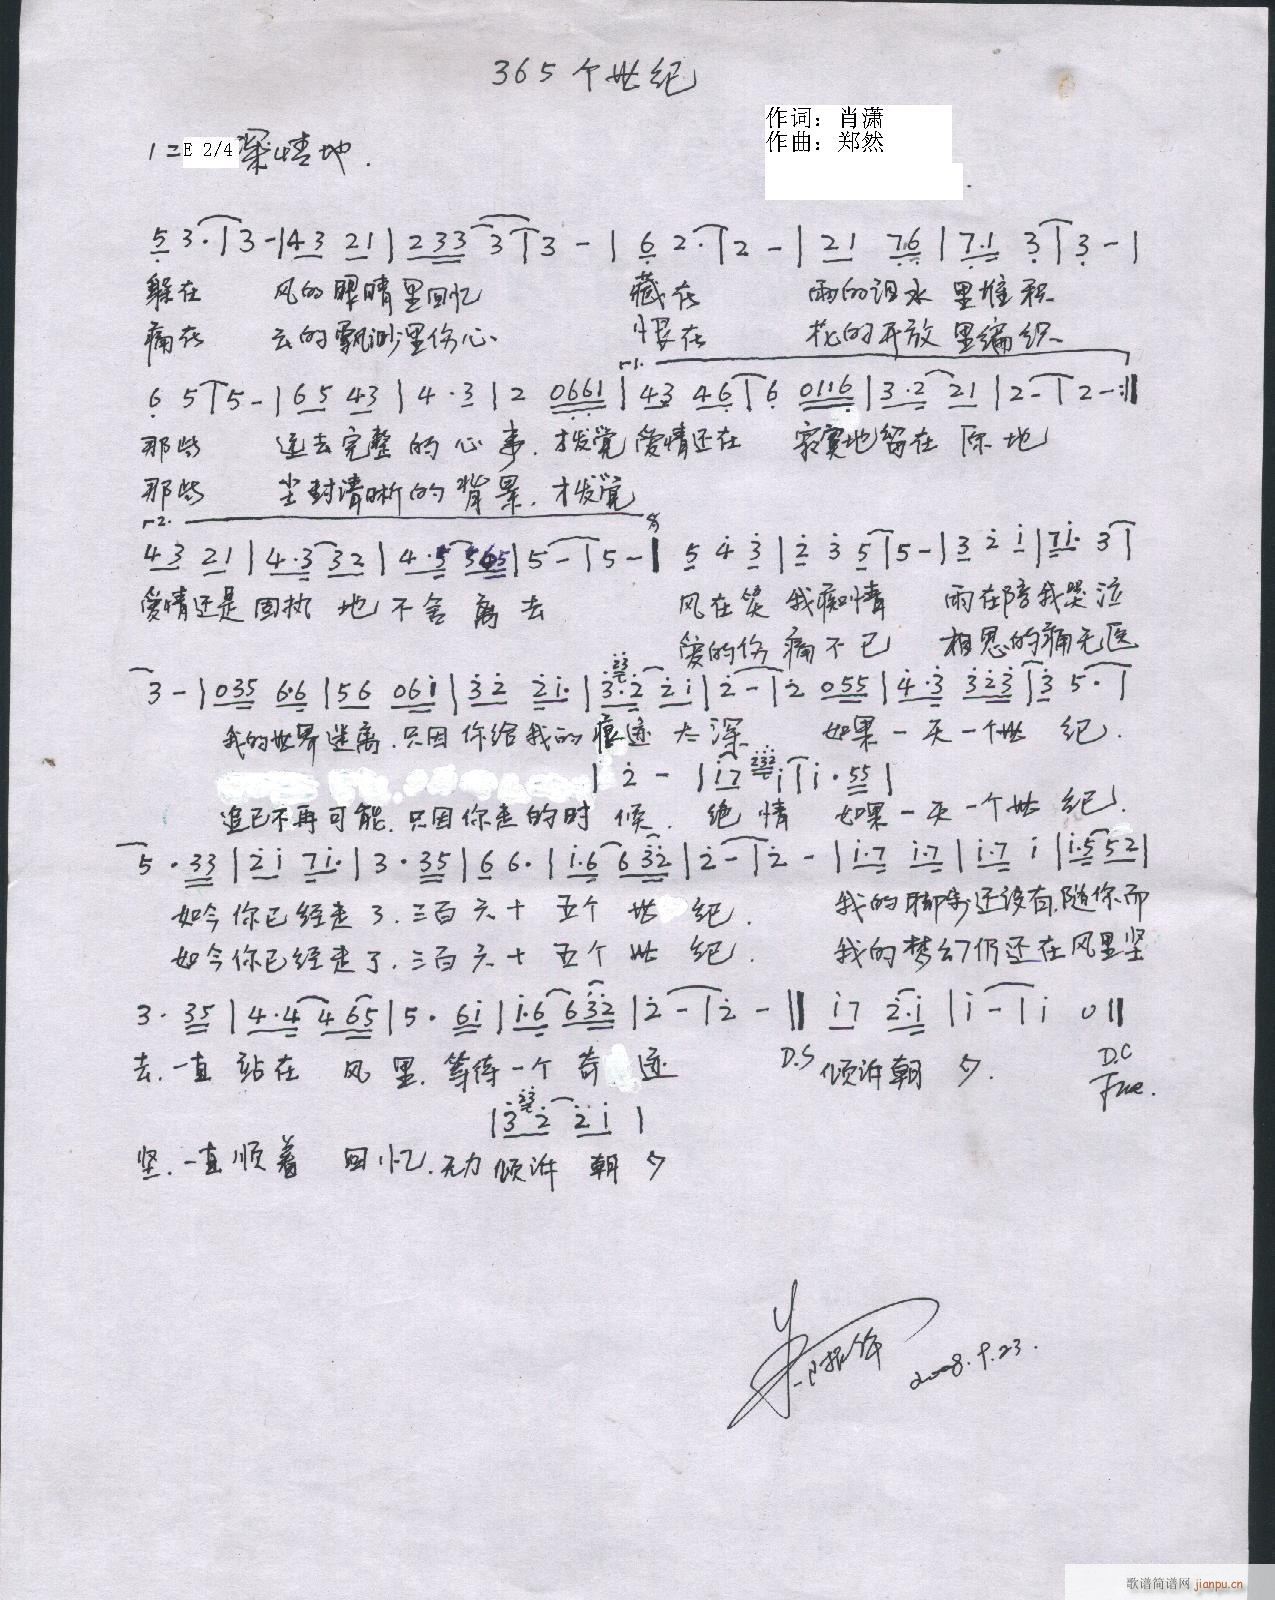 365个世纪
作词：肖潇
作曲：郑然
1=E 2/4 深情地.
5 3.|3-|43 21|233 3|3-|6 2.|2-|21 76|7.1 3|3-|
躲在 风的眼睛里回忆 藏在 雨的泪水里堆积
痛在 云的飘渺里伤心 恨在 花的开放里编织
1.
6 5|5-|65 43|4.3|2 0661|43 46|6 0116|3.2 21|2-|2-:||
那些 逝去完整的心事.才发觉爱情还在 寂寞地留在原地
那些 尘封清晰的背景.才发觉
2.
43 21|4.3 32|4.5 565|5-|5-|| 5 4 3|2 3 5|5-|3 2 1|71. 3|
爱情还是固执地不舍离去 风在笑我痴情 雨在陪我哭泣
爱的伤痛不已 相思的痛无医
3-|035 6.6|56 061|32 21.|3.2 21|2-|2 055|4.3 323|3 5.|
我的世界迷离.只因你给我的痕迹太深 如果一天一个世纪.
|2-|17 232 1|1.55|
追已不再可能.只因你走的时候.绝情 如果一天一个世纪.
5.33|21 71.|3.35|6 6.|1.6 632|2-|2-|1.7 1.7|1.7 1|1.5 52|
如今你已经走了.三百六十五个世纪. 我的脚步还没有随你而
如今你已经走了.三百六十五个世纪. 我的梦幻仍还在风里坚
3.35|4.4 465|5.61|1.6 632|2-|2-|| 17 2.1|1-|1 0||
去.一直站在风里.等待一个奇迹 D.S 倾诉朝夕. D.C
Fine.
|3 2 21|
坚.一直顺着回忆.无力倾诉朝夕
2008.9.23.
歌谱简谱网 jianpu.cn